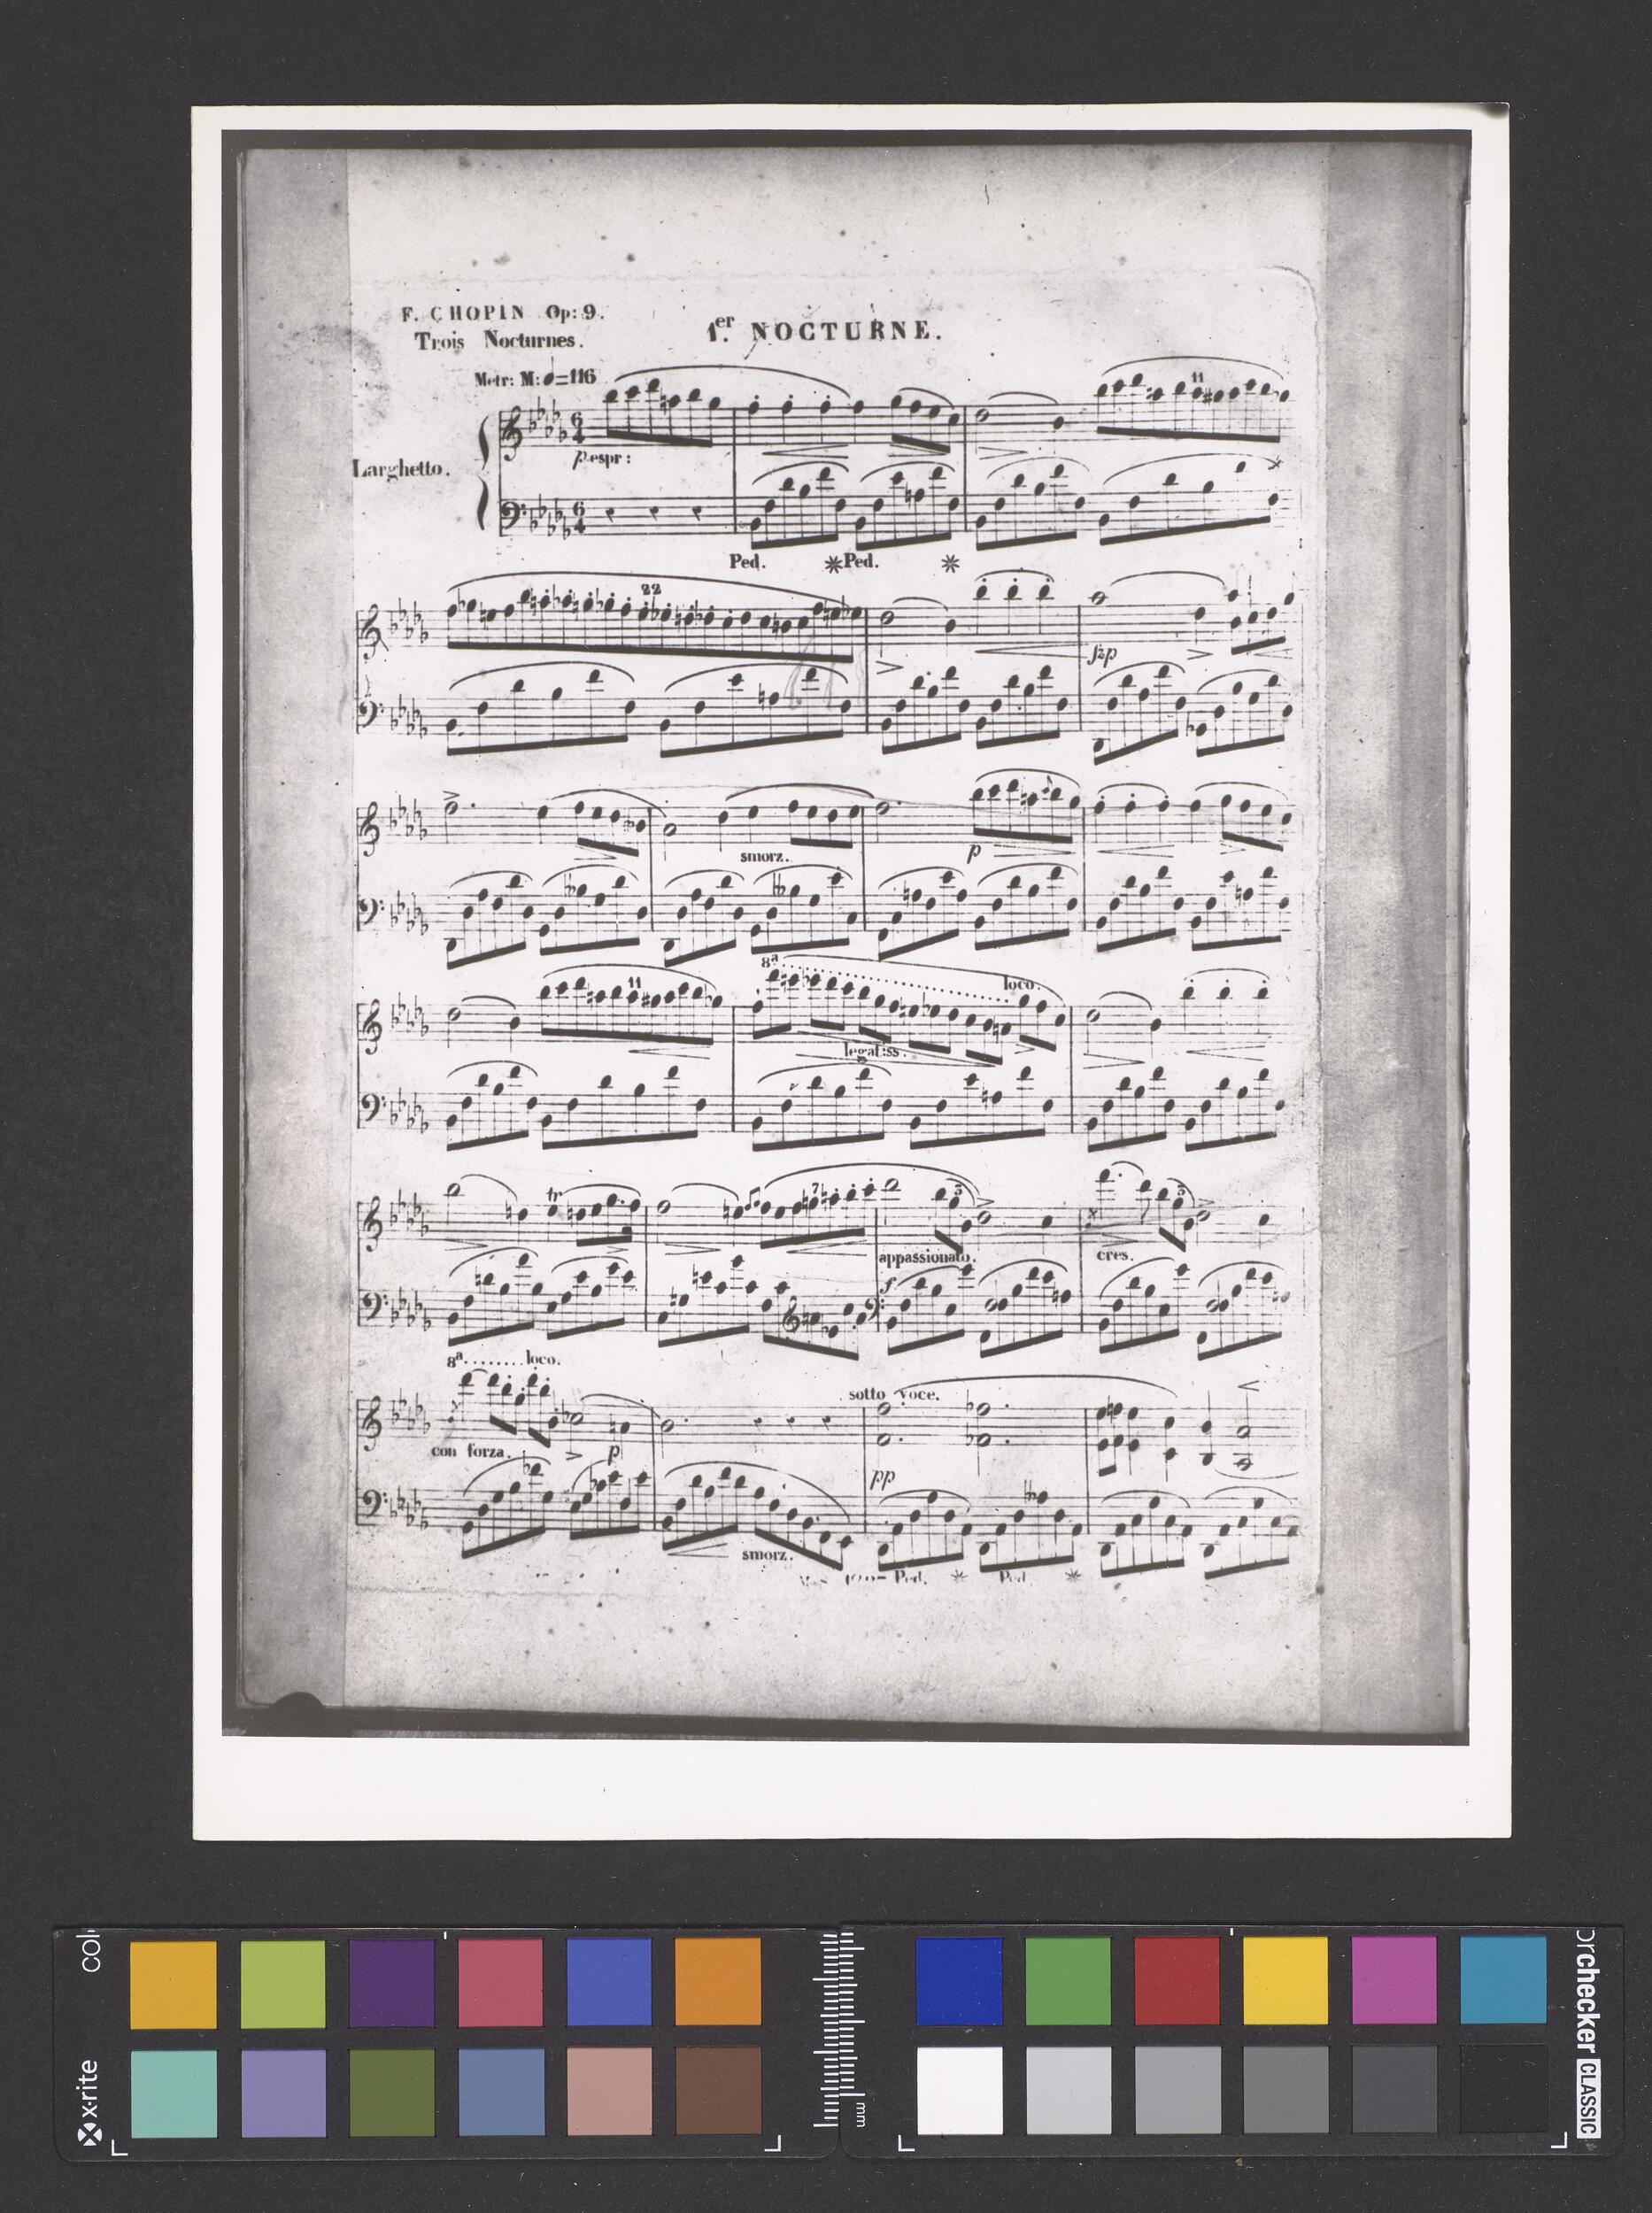 F. CHOPIN Op: 9.
Trois Nocturnes.
1.er NOCTURNE.
Metr: M: =116
11
6
4
Larghetto.
p espr:
6
4
Ped. Ped.
22
fzp
smorz.
p
8a
11
loco.
legatiss.
tr
7
3
3
appassionato.
cres.
f
8a........loco.
sotto voce.
con forza.
p
pp
smorz.
Ped. Ped.
x-rite
mm
orchecker CLASSIC